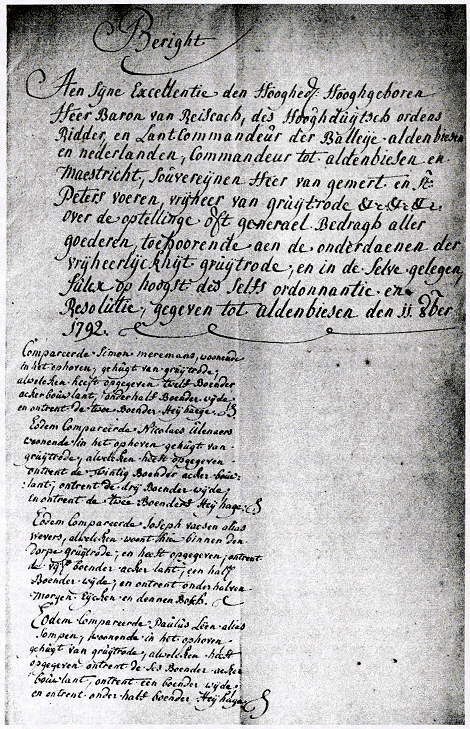 Beright
Aen Syne Excellentie den Hooghed: Hooghgeboren
Heer Baron van Reiscach, des Hooghduÿtsch ordens
Ridder, en Lant Commandeur der Balleÿe aldenbiesen
en nederlanden, Commandeur tot aldenbiesen en
Maestricht, Souvereÿnen Heer van gemert en St:
Peters voeren, vrijheer van gruÿtrode &c &c &c
over de optellinge oft generael Bedragh aller
goederen, toehoorende aen de onderdaenen der
vrijheerlijckhÿt gruÿtrode, en in de selve gelegen,
sulex op hoogst des Selfs ordonnantie en
Resolutie, gegeven tot aldenbiesen den 11 8ber
1792.
Compareerde Simon meremans, woonende
in het ophoven, gehught van gruÿtrode,
alwelcken heeft opgegeven twelf Boender
acker bouw lant, onderhalf Boender wijde
en ontrent de twee Boender Heÿ
Eodem Compareerde Nicolaes Ulenaers
woonende in het ophoven gehught van
gruÿtrode, alwelcken heeft opgegeven
ontrent de twintig Boender acker bouw
lant, ontrent de drÿ Boender wijde,
en ontrent de twee Boenders Heÿ hage
Eodem Compareerde Joseph vaesen alias
wevers, alwelcken woont hier binnen den
Dorpe gruÿtrode, en heeft opgegeven, ontrent
de boender acker lant, een half
Boender wijde, en ontrent onderhalven
morgen Eÿcken en dennen Bosch.
Eodem Compareerde Paulus Leen alias
Compen, woonende in het ophoven
gehught van gruÿtrode, alwelcken heeft
opgegeven ontrent de ses Boender acker
bouw lant, ontrent een boender wijde
en ontrent onder half boender Heÿ hage